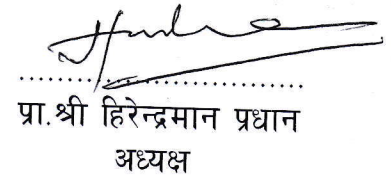 ..............................
प्रा.श्री हिरेन्द्रमान प्रधान
अध्यक्ष